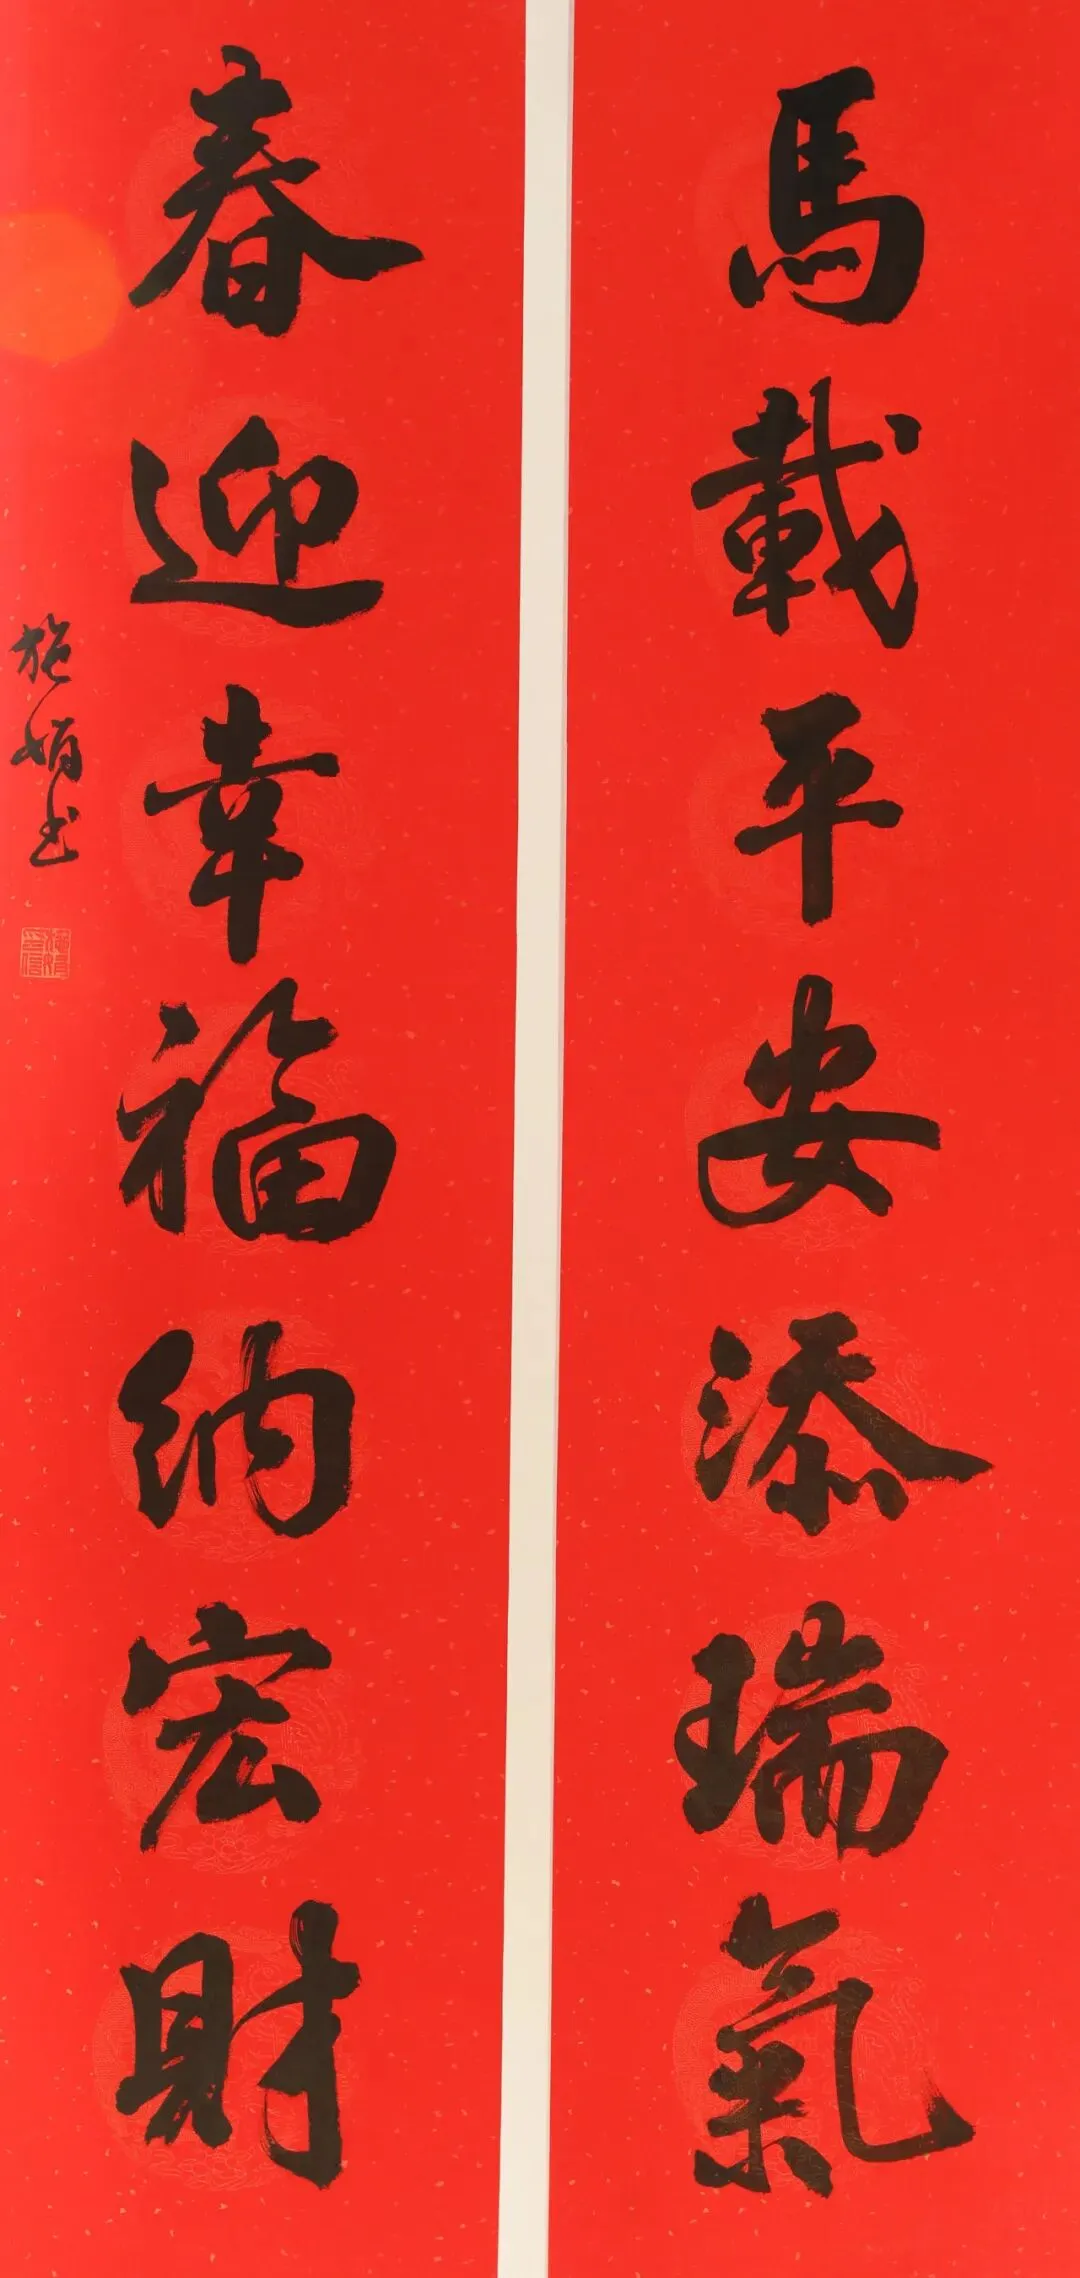 馬載平安添瑞氣
春迎幸福納宏財
施娟书